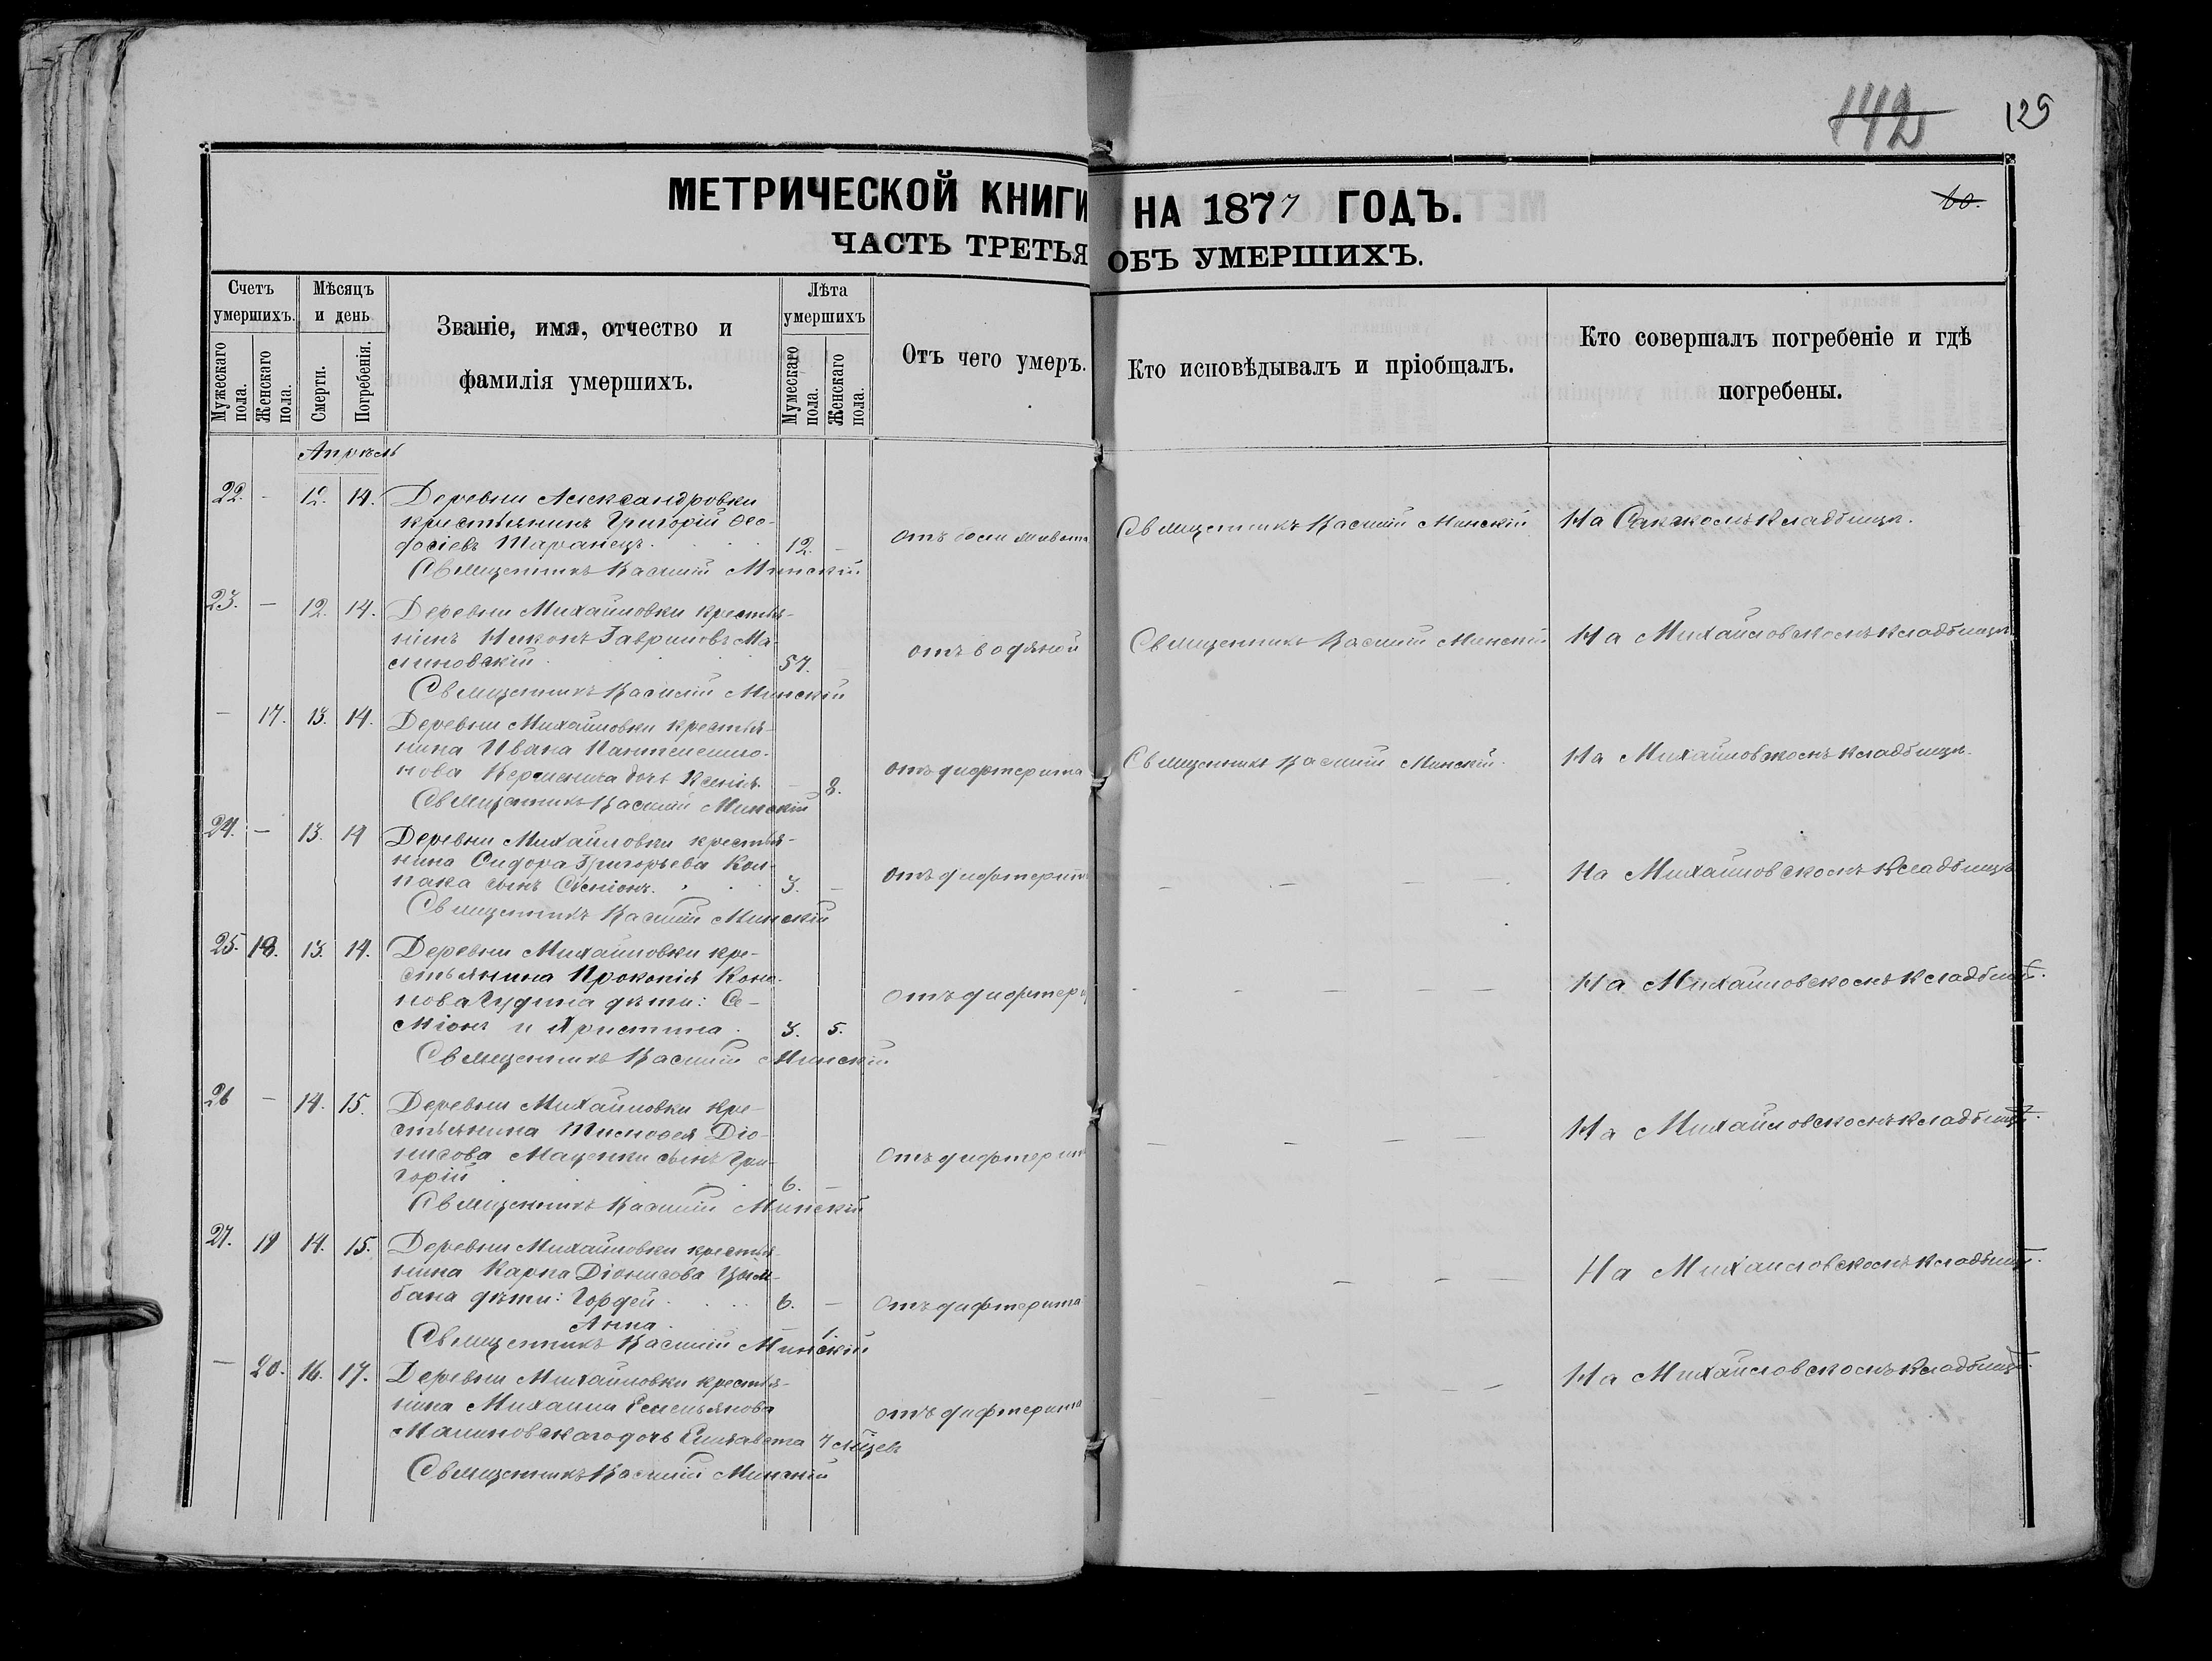 142 125
МЕТРИЧЕСКОЙ КНИГИ НА 1877 ГОДЪ.
60.
ЧАСТЬ ТРЕТЬЯ ОБЪ УМЕРШИХЪ.
Счетъ умершихъ.
Мужескаго пола.
Женскаго пола.
Мѣсяцъ и день
Смерти.
Погребенія.
Званіе, имя, отчество и
фамилія умершихъ.
Лѣта умершихъ
Мумескаго пола.
Женскаго пола.
Отъ чего умеръ.
Кто исповѣдывалъ и пріобщалъ.
Кто совершалъ погребеніе и гдѣ
погребены.
Апрѣль
22. - 12. 14. Деревни Александровки
крестьянинъ Григорій Ѳео-
досіевъ Шаранецъ. 12. - отъ боли живота Священникъ Василій Минскій На кладбищѣ.
Священникъ Василій Минскій
23. - 12. 14. Деревни Михайловки крестья-
нинъ Никонъ Гавриловъ Ма-
линовскій. 57. отъ водяной Священникъ Василій Минскій На Михайловскомъ кладбищѣ
Священникъ Василій Минскій
- 17. 13. 14. Деревни Михайловки крестья-
нина Ивана Пантелеимо-
нова дочь Ксенія. - 8. отъ дифтерита Священникъ Василій Минскій. На Михайловскомъ кладбищѣ.
Священникъ Василій Минскій
24. - 13. 14 Деревни Михайловки крестья-
нина Сидора Григорьева Кол-
пака сынъ Семіонъ. 3. - отъ дифтерита - - - - На Михайловскомъ кладбищѣ
Священникъ Василій Минскій
25. 18. 13. 14. Деревни Михайловки кре-
стьянина Прокопія Коно-
нова Гудина дѣти: Се-
міонъ и Христина. 3. 5. отъ дифтери - - - - На Михайловскомъ кладбищѣ.
Священникъ Василій Минскій
26 - 14. 15. Деревни Михайловки кре-
стьянина Тимофея Діо-
нисова Маценки сынъ Гри-
горій 6. - Отъ дифтерит - - - - На Михайловскомъ кладбищѣ.
Священникъ Василій Минскій
27. 19 14. 15. Деревни Михайловки крестья-
нина Карпа Діонисова Цым-
бала дѣти: Гордей. 6. - Отъ дифтерита - - - - На Михайловскомъ кладбищѣ.
Анна. - 1.
Священникъ Василій Минскій
- 20. 16. 17. Деревни Михайловки крестья-
нина Михаила Емельянова
Малиновскаго дочь Елизавета 7 мѣсяц. отъ дифтерита - - - - На Михайловскомъ кладбищѣ.
Священникъ Василій Минскій